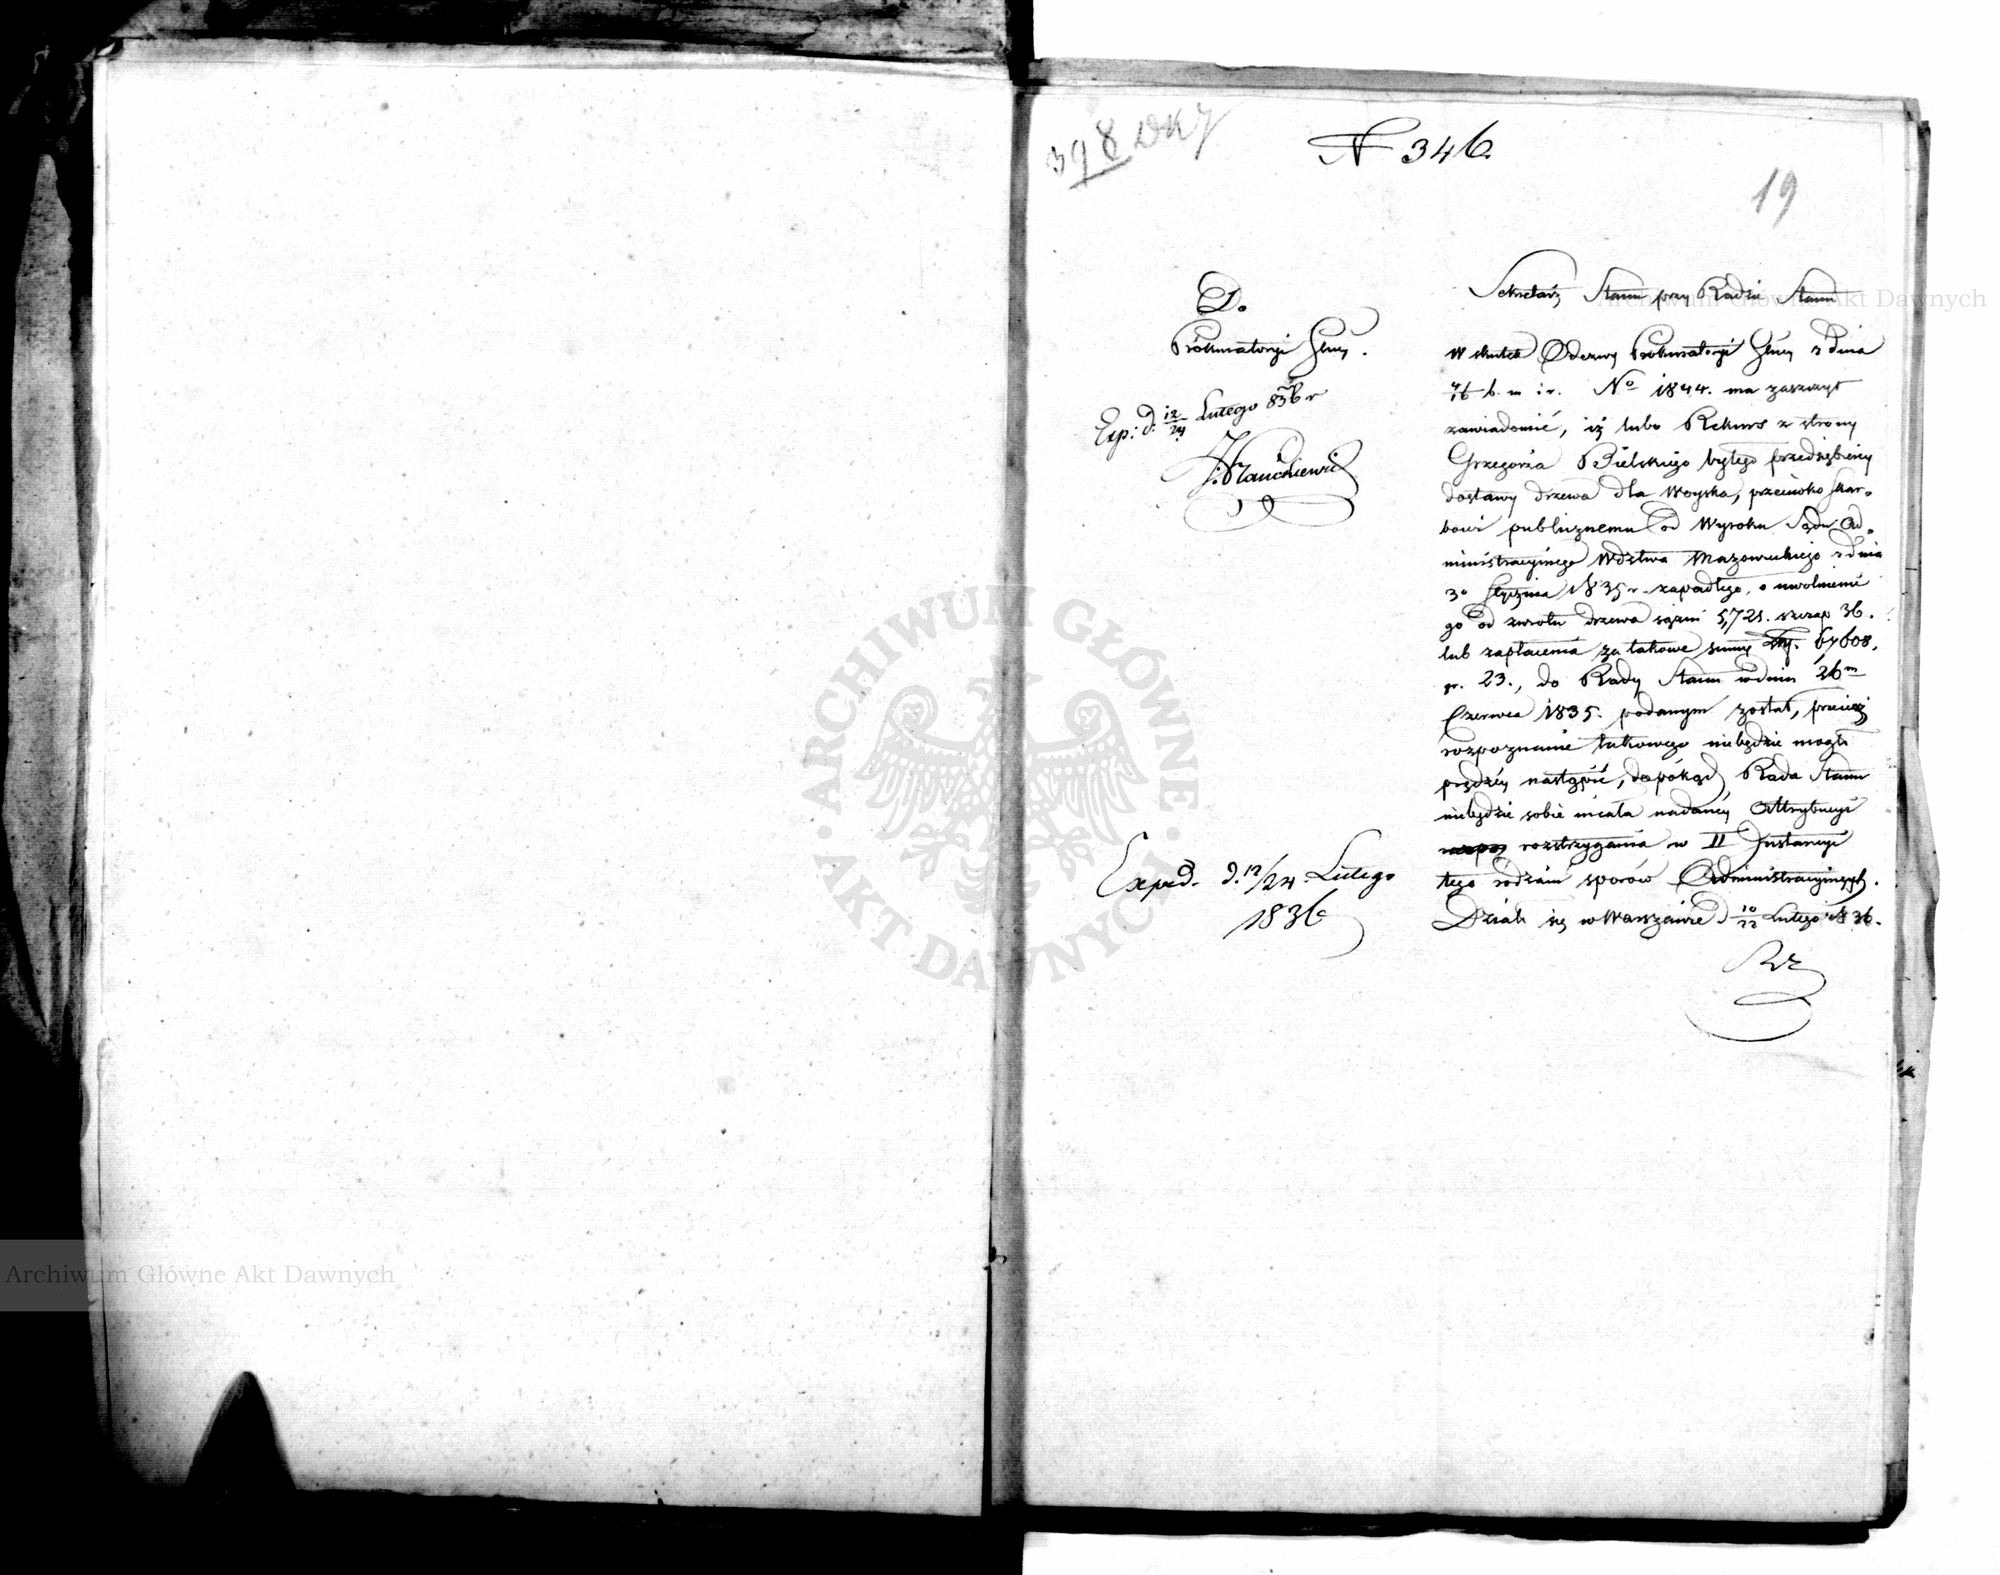 398 DKJ
N 346.
19
Do
Prokuratoryi Glney.
Exp: d. 12/24 Lutego 836 r
Exped. d. 12/24. Lutego
1836
Sekretarz Stanu przy Radzie Stanu
W skutek Odezwy Prokuratoryi Glney z dnia
4/16 b. m i r. No 1844. ma zaszczyt
zawiadomić, iż lubo Rekurs z strony
Grzegorza Bielskiego byłego przedsiębiercy
dostawy drzewa dla Woyska, przeciwko Skar-
bowi publicznemu od Wyroku Sądu Ad-
ministracyinego Wdztwa Mazowieckiego z dnia
30 Stycznia 1835 r. zapadłego, o uwolnienie
go od zwrotu drzewa sążni 5,721. szczap 36.
lub zapłacenia za takowe summy Złp. 67608.
gr. 23., do Rady Stanu w dniu 26m
Czerwca 1835. podanym został, przecież
rozpoznanie takowego niebędzie mogło
prędzéy nastąpić, dopókąd Rada Stanu
niebędzie sobie miała nadanéy Attrybucyi
rozstrzygania w II Instancyi
tego rodzaiu sporów Administracyinych.
Działo się w Warszawie d 10/22 Lutego 1836.
Archiwum Główne Akt Dawnych
Archiwum Główne Akt Dawnych
ARCHIWUM GŁÓWNE
AKT DAWNYCH